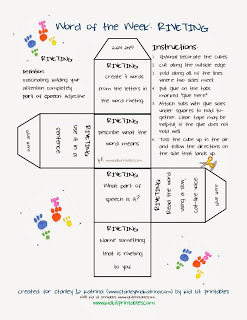 Word of the Week: RIVETING
RIVETING
Definition:
fascinating, holding your
attention completely
part of speech: adjective
Instructions
1. Optional: decorate the cubes
2. Cut along the outside edge
3. Fold along all of the lines
where two sides meet
4. Put glue on the tabs
marked "glue here"
5. Attach tabs with glue sides
under squares to hold to-
gether. Clear tape may be
helpful, if the glue does not
hold well
6. Toss the cube up in the air
and follow the directions on
the side that lands up.
glue here
RIVETING
create 3 words
from the letters in
the word riveting
glue here
RIVETING
use it in a
sentence
RIVETING
describe what the
word means
RIVETING
What part of
speech is it?
RIVETING
Read the word
using a slow,
cat-like voice
glue here
RIVETING
Name something
that is riveting
to you
created for Stanley & Katrina (www.stanleyandkatrina.com) by Kid Lit Printables
www.kidlitprintables.com